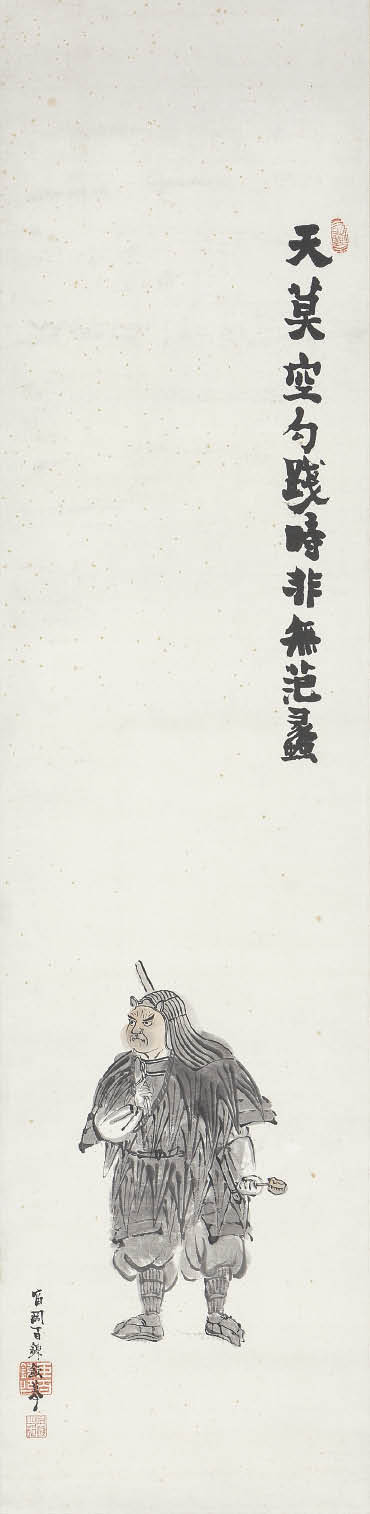 天莫空勾踐時非無范蠡
富岡百錬